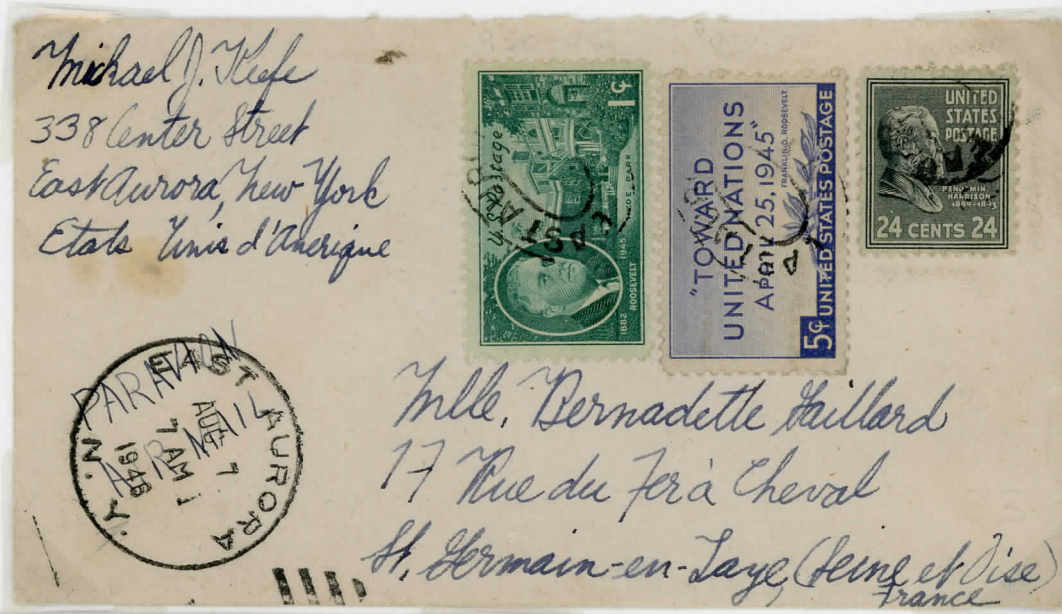 Michael J. Keefe
338 Center Street
East Aurora, New York
Etats Unis d'Amerique
U.S. Postage
1¢
1882 1945
ROOSEVELT
"TOWARD
UNITED NATIONS
APRIL 25, 1945"
FRANKLIN D. ROOSEVELT
5¢ UNITED STATES POSTAGE
UNITED
STATES
POSTAGE
BENJAMIN
HARRISON
1889-1893
24 CENTS 24
PAR AVION
AIR MAIL
EAST AURORA
N.Y.
AUG 7
7 AM
1946
Mlle. Bernadette Gaillard
17 Rue du Fer à Cheval
St. Germain-en-Laye, (Seine et Oise)
France